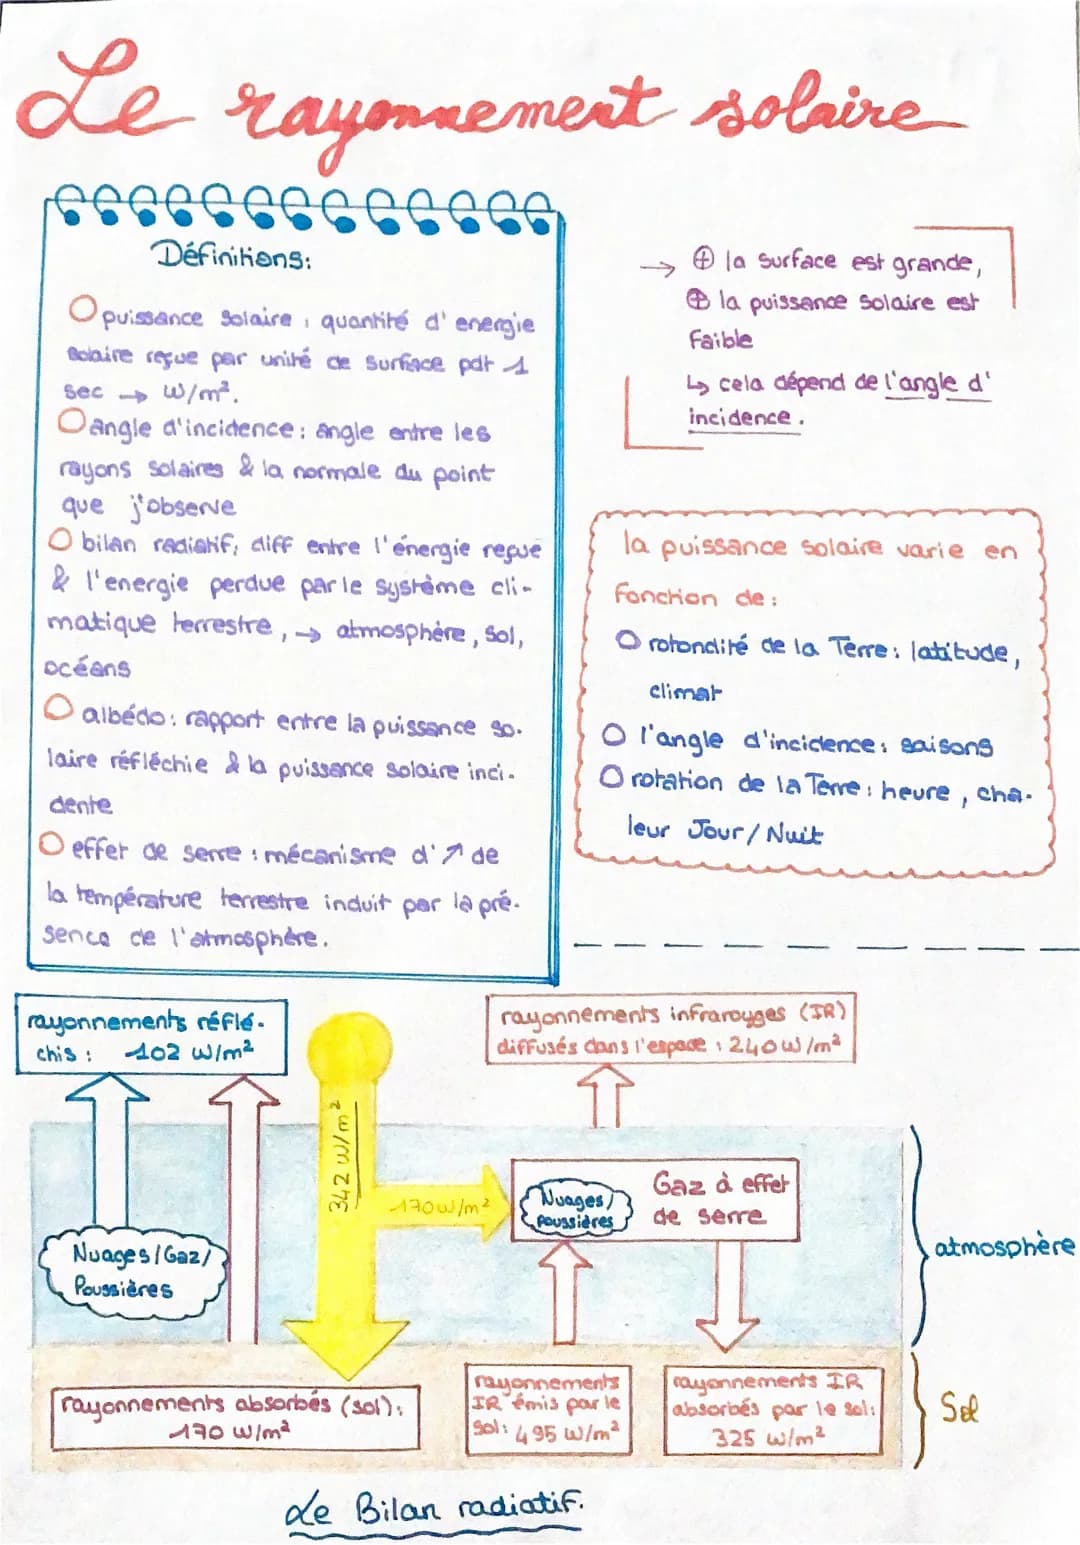 Le rayonnement solaire
Définitions:
puissance solaire : quantité d'energie
solaire reçue par unité de surface pdt 1
sec → W/m².
angle d'incidence : angle entre les
rayons solaires & la normale du point
que j'observe
bilan radiatif, diff entre l'énergie reçue
& l'energie perdue par le système cli-
matique terrestre, → atmosphère, sol,
océans
albédo : rapport entre la puissance so-
laire réfléchie & la puissance solaire inci-
dente
effet de serre : mécanisme d'↗ de
la température terrestre induit par la pré-
sence de l'atmosphère.
→ ⊕ la surface est grande,
⊕ la puissance solaire est
faible
↳ cela dépend de l'angle d'
incidence.
la puissance solaire varie en
fonction de :
rotondité de la Terre : latitude,
climat
l'angle d'incidence : saisons
rotation de la Terre : heure, cha-
leur Jour/Nuit
rayonnements réflé-
chis : 102 W/m²
rayonnements infrarouges (IR)
diffusés dans l'espace : 240 W/m²
342 W/m²
170 W/m²
Nuages/
poussières
Gaz à effet
de serre
Nuages/Gaz/
Poussières
atmosphère
rayonnements absorbés (sol):
170 W/m²
rayonnements
IR émis par le
sol : 495 W/m²
rayonnements IR
absorbés par le sol:
325 W/m²
Sol
Le Bilan radiatif.